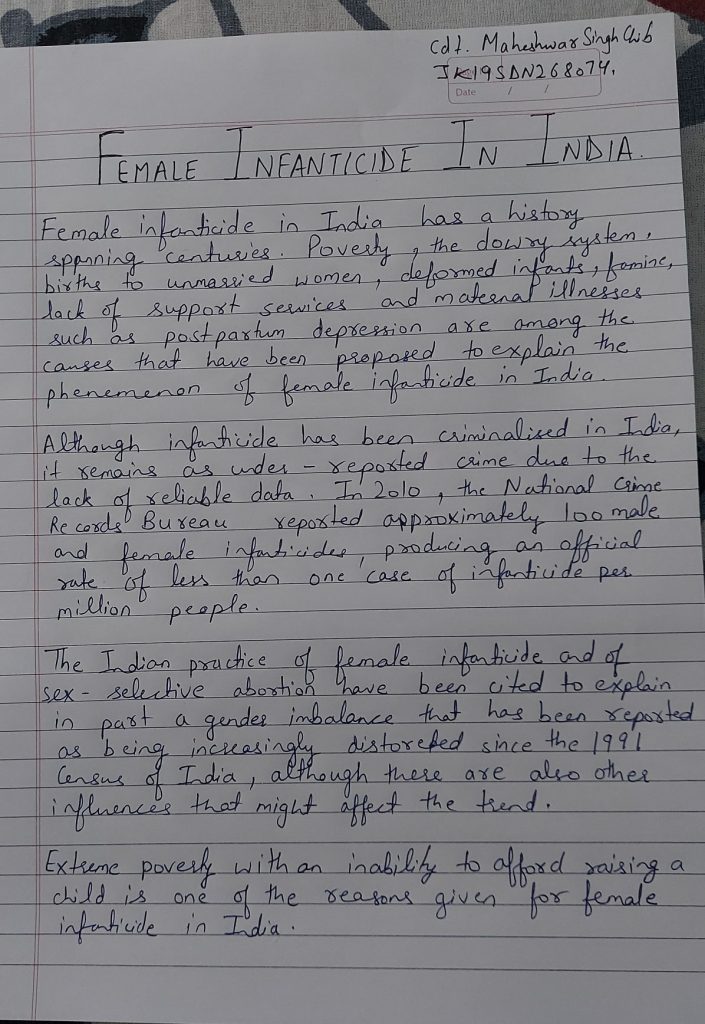 Cdt. Maheshwar Singh Chib
JK19SDN268074.
Date / /
FEMALE INFANTICIDE IN INDIA.
Female infanticide in India has a history
spenning centuries. Poverty, the dowry system,
births to unmarried women, deformed infants, famine,
lack of support services and maternal illnesses
such as postpartum depression are among the
causes that have been proposed to explain the
phenemenon of female infanticide in India.
Although infanticide has been criminalised in India,
it remains as under-reported crime due to the
lack of reliable data. In 2010, the National Crime
Records Bureau reported approximately 100 male
and female infanticides, producing an official
rate of less than one case of infanticide per
million people.
The Indian practice of female infanticide and of
sex-selective abortion have been cited to explain
in part a gender imbalance that has been reported
as being increasingly distoreted since the 1991
Census of India, although there are also other
influences that might affect the trend.
Extreme poverty with an inability to afford raising a
child is one of the reasons given for female
infanticide in India.